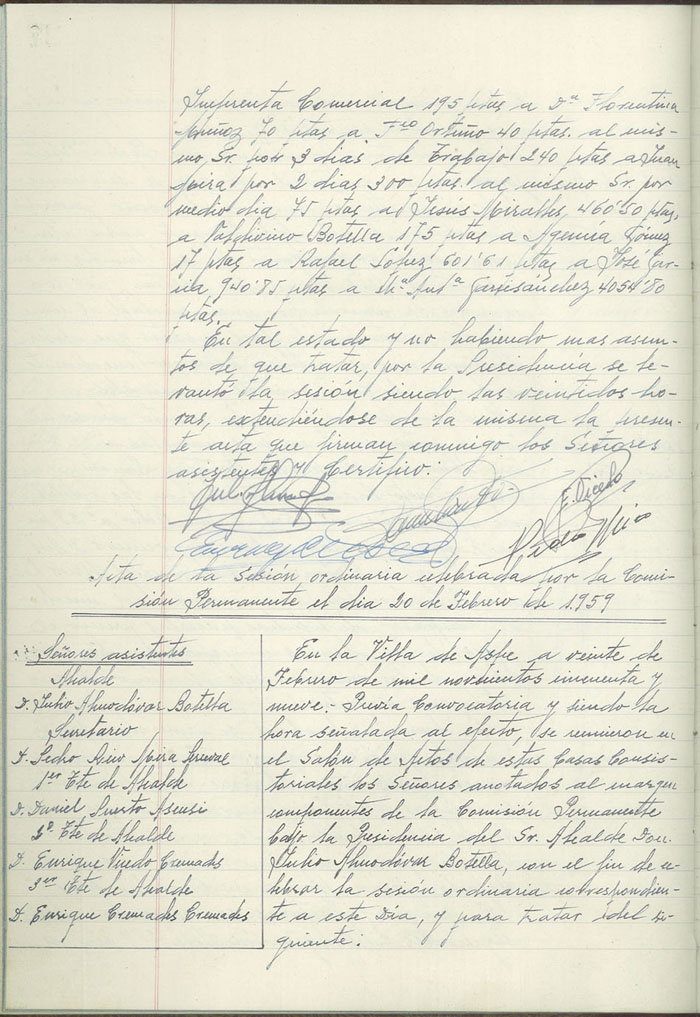 Imprenta Comercial 195 ptas a Dª Florentina
Muñoz 70 ptas a Fco Ortuño 40 ptas. al mis-
mo Sr. por 3 dias de Trabajo 240 ptas a Juan
Mira por 2 dias 300 ptas. al mismo Sr. por
medio dia 75 ptas a Jesús Miralles 460'50 ptas,
a Valdivino Botella 175 ptas a Agencia Gómez
17 ptas a Rafael López 601'61 ptas a José Gar-
cia 940'85 ptas a Mª Antª Garcisánchez 4054'80
ptas.
En tal estado y no habiendo mas asun-
tos de que tratar, por la Presidencia se le-
vantó la sesión, siendo las veintidos ho-
ras, extendiéndose de la misma la presen-
te acta que firman conmigo los Señores
asistentes y Certifico:
E. Vicedo
Acta de la Sesión ordinaria celebrada por la Comi-
sión Permanente el dia 20 de Febrero de 1.959
Señores asistentes
Alcalde
D. Julio Almodóvar Botella
Secretario
D. Pedro Rico Mira
1er Tte de Alcalde
D. Daniel Puerto Asensi
2º Tte de Alcalde
D. Enrique Vicedo Cremades
3er Tte de Alcalde
D. Enrique Cremades Cremades
En la Villa de Aspe a veinte de
Febrero de mil novecientos cincuenta y
nueve.- Previa Convocatoria y siendo la
hora señalada al efecto, se reunieron en
el Salón de Actos de estas Casas Consis-
toriales los Señores anotados al margen
componentes de la Comisión Permanente
bajo la Presidencia del Sr. Alcalde Don
Julio Almodóvar Botella, con el fin de ce-
lebrar la sesión ordinaria correspondien-
te a este Día, y para tratar del si-
guiente: